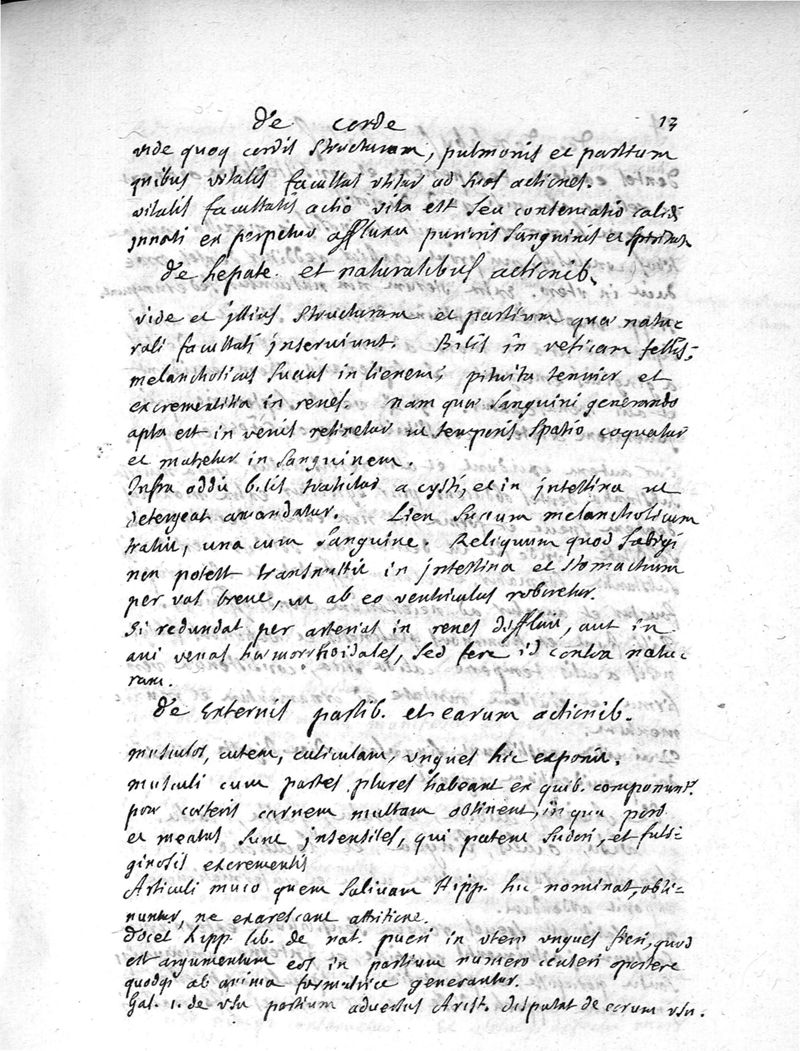 de corde 13
vide quoq cordis structuram, pulmonis et partium
quibus vitalis facultas utitur ad suas actiones.
vitalis facultatis actio vita est seu conservatio calidi
innati ex perpetuo affluxu purioris sanguinis et spirituum
de hepate. et naturalibus actionib.
vide et illius structuram et partium quæ natu-
rali facultati inserviunt. Bilis in vesicam fellis;
melancholicus succus in lienem; pituita tenuior et
excrementitia in renes. nam quæ sanguini generando
apta est in venis retinetur ut temporis spatio coquatur
et mutetur in sanguinem.
Infra addit bilis trahitur a cysti, et in intestina ut
detergeat amandatur. Lien succum melancholicum
trahit, una cum sanguine. Reliquum quod subigi
non potest transmittit in intestina et stomachum
per vas breve, ut ab eo ventriculus roboretur.
si redundat per arterias in renes diffluit, aut in
ani venas hæmorrhoidales, sed fere id contra natu-
ram.
de Externis partib. et earum actionib.
musculos, cutem, cuticulam, ungues hic exponit.
musculi cum partes plures habeant ex quib. componunt.
præ cæteris carnem multam obtinent, in qua pori
et meatus sunt insensiles, qui patent sudori, et fuli-
ginosis excrementis
Articuli muco quem salivam Hipp. hic nominat, obli-
nuntur, ne exarescant attritione.
docet Hipp. lib. de nat. pueri in utero ungues fieri, quod
est argumentum eos in partium numero censeri oportere
quodq ab anima formatrice generantur.
Gal. 1. de usu partium adversus Arist. disputat de eorum usu.